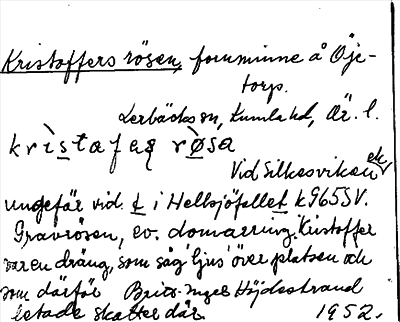 Kristoffers rösen, fornminne å Öje-
torp.
Lerbäcks sn, Kumla hd, Är. l.
kristafaʂ rø̀sa
Vid Silkesviken ek
ungefär vid t i Hellsjöfellet k965SV.
Gravrösen, ev. domarring. "Kristoffer
var en dräng, som såg 'ljus' över platsen och
som därför Britt-Inger Höjdestrand
letade skatter där. 1952.